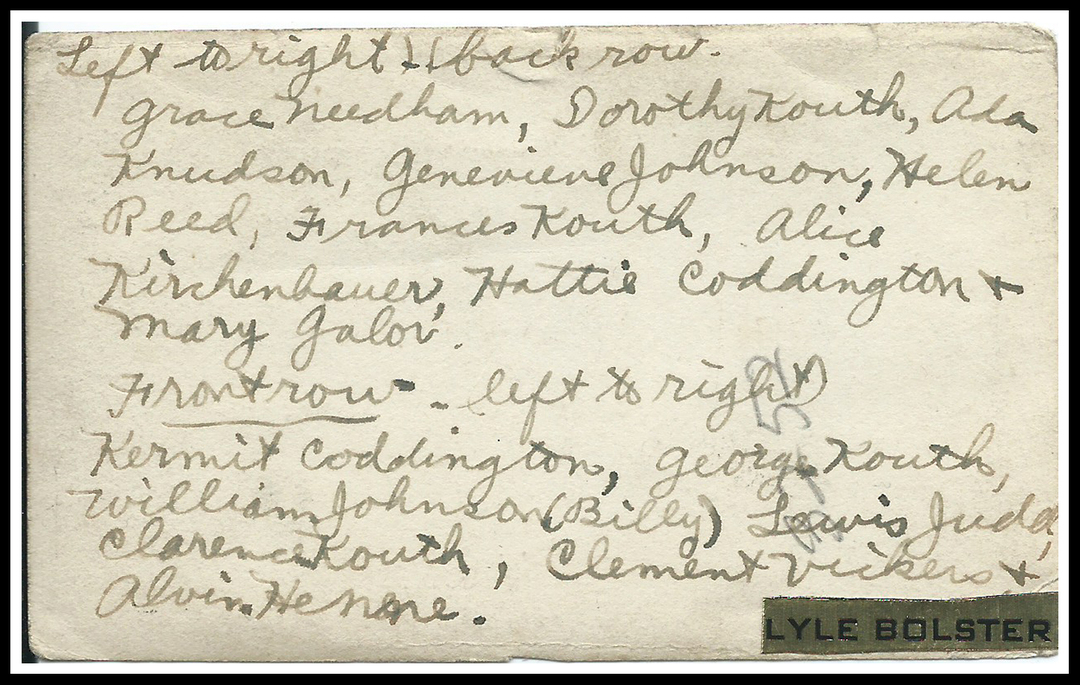 Left to right) (back row.
Grace Needham, Dorothy Kouth, Ada
Knudson, Genevieve Johnson, Helen
Reed, Frances Kouth, Alice
Kirchenbauer, Hattie Coddington +
Mary Galov.
Front row - left to right)
Kermit Coddington, George Kouth,
William Johnson (Billy) Lewis Judd,
Clarence Kouth, Clement Vickers +
Alvin.
LYLE BOLSTER